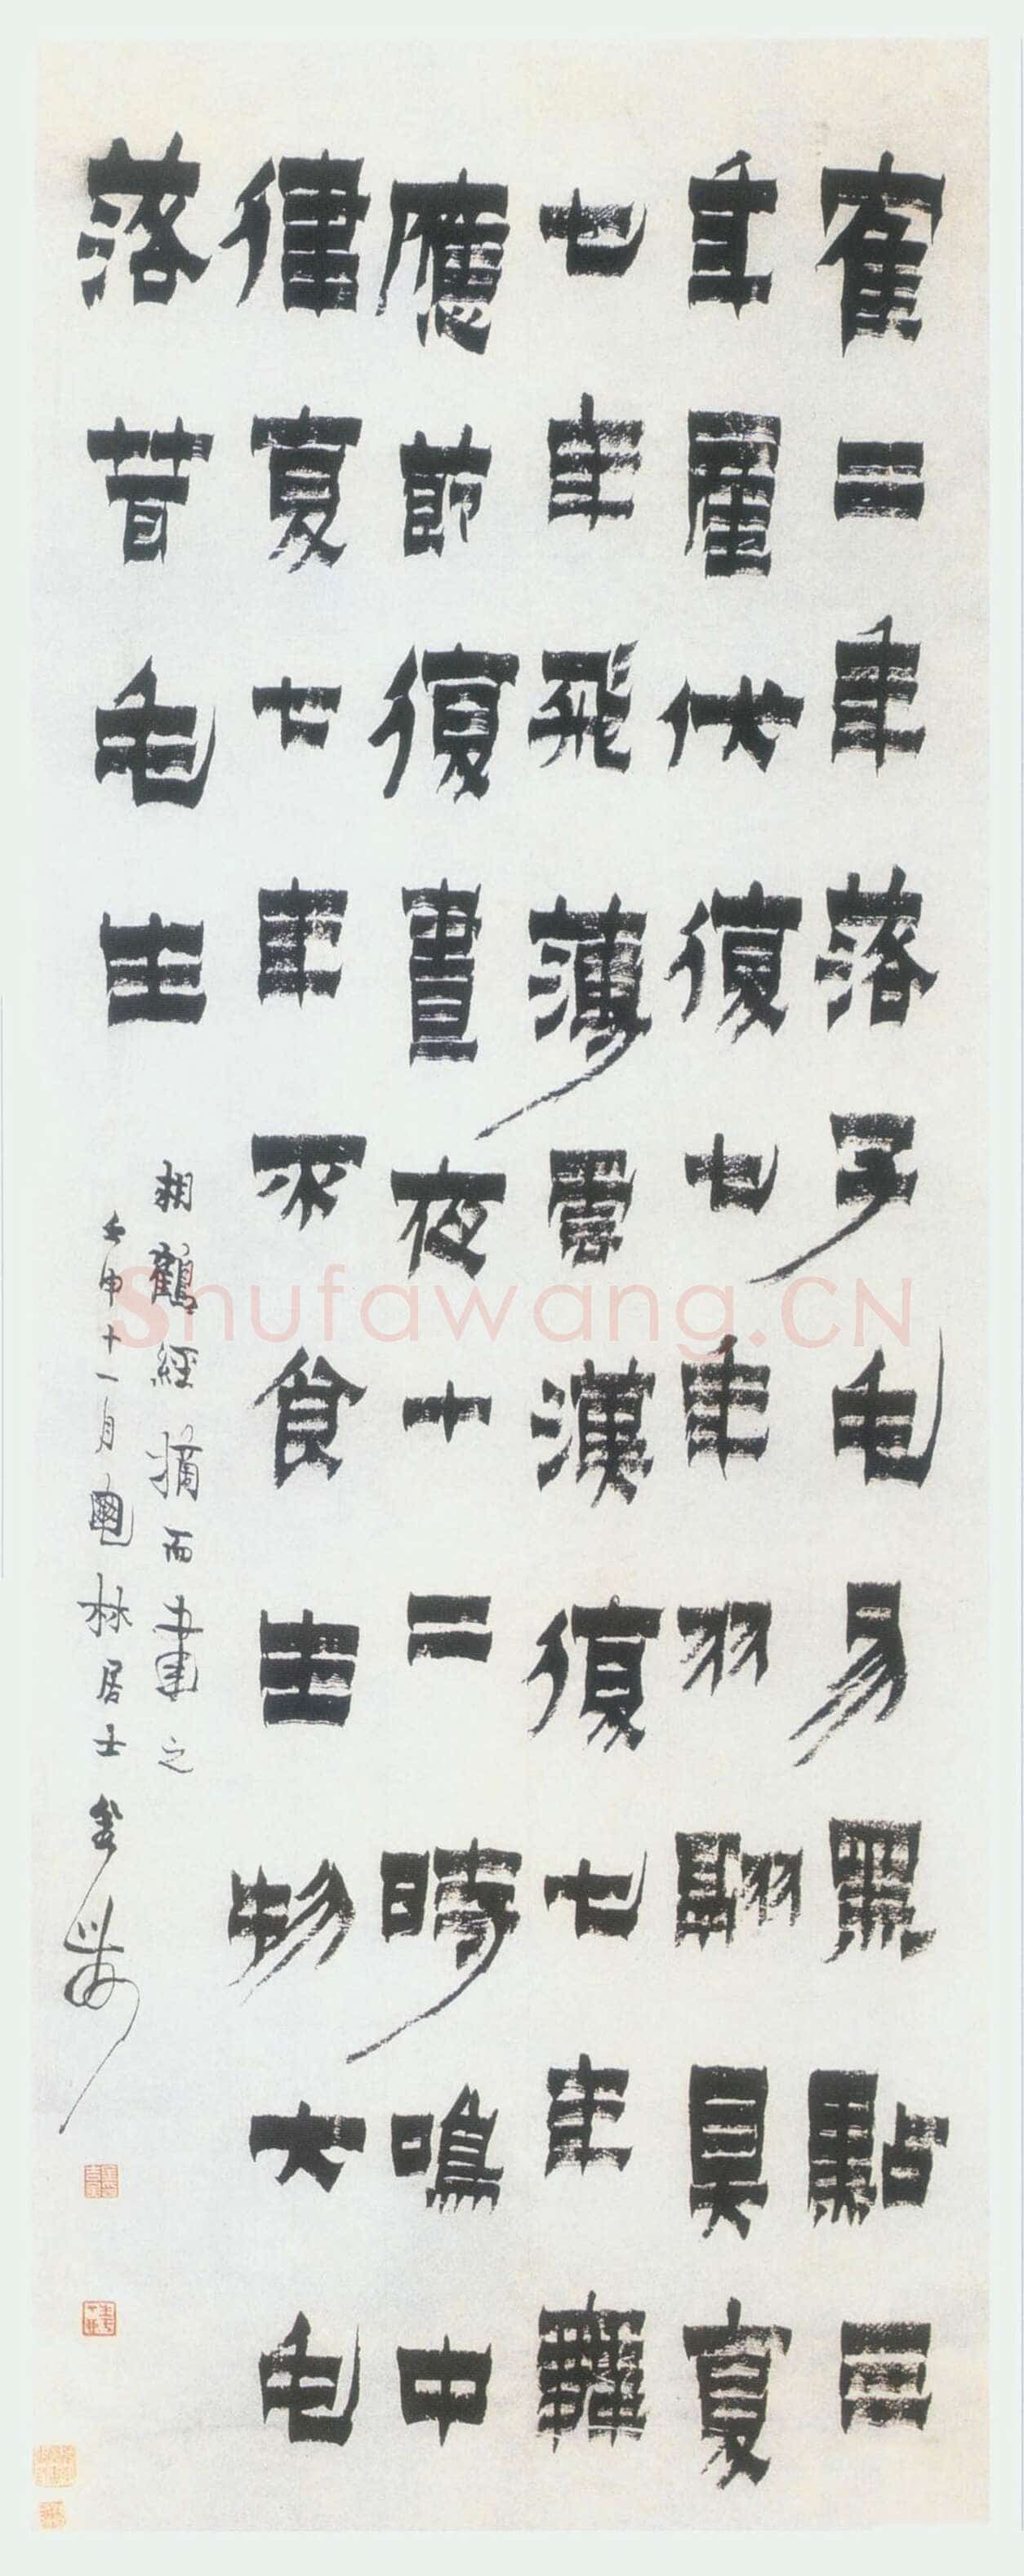 隺二年落子毛易黑點三
年產伏復七年羽翮具夏
七年飛薄雲漢復七年舞
應節復晝夜十二時鳴中
律夏七年不食生物大毛
落茸毛生
相鶴經摘而書之
壬申十一月林居士金農
Shufawang.CN